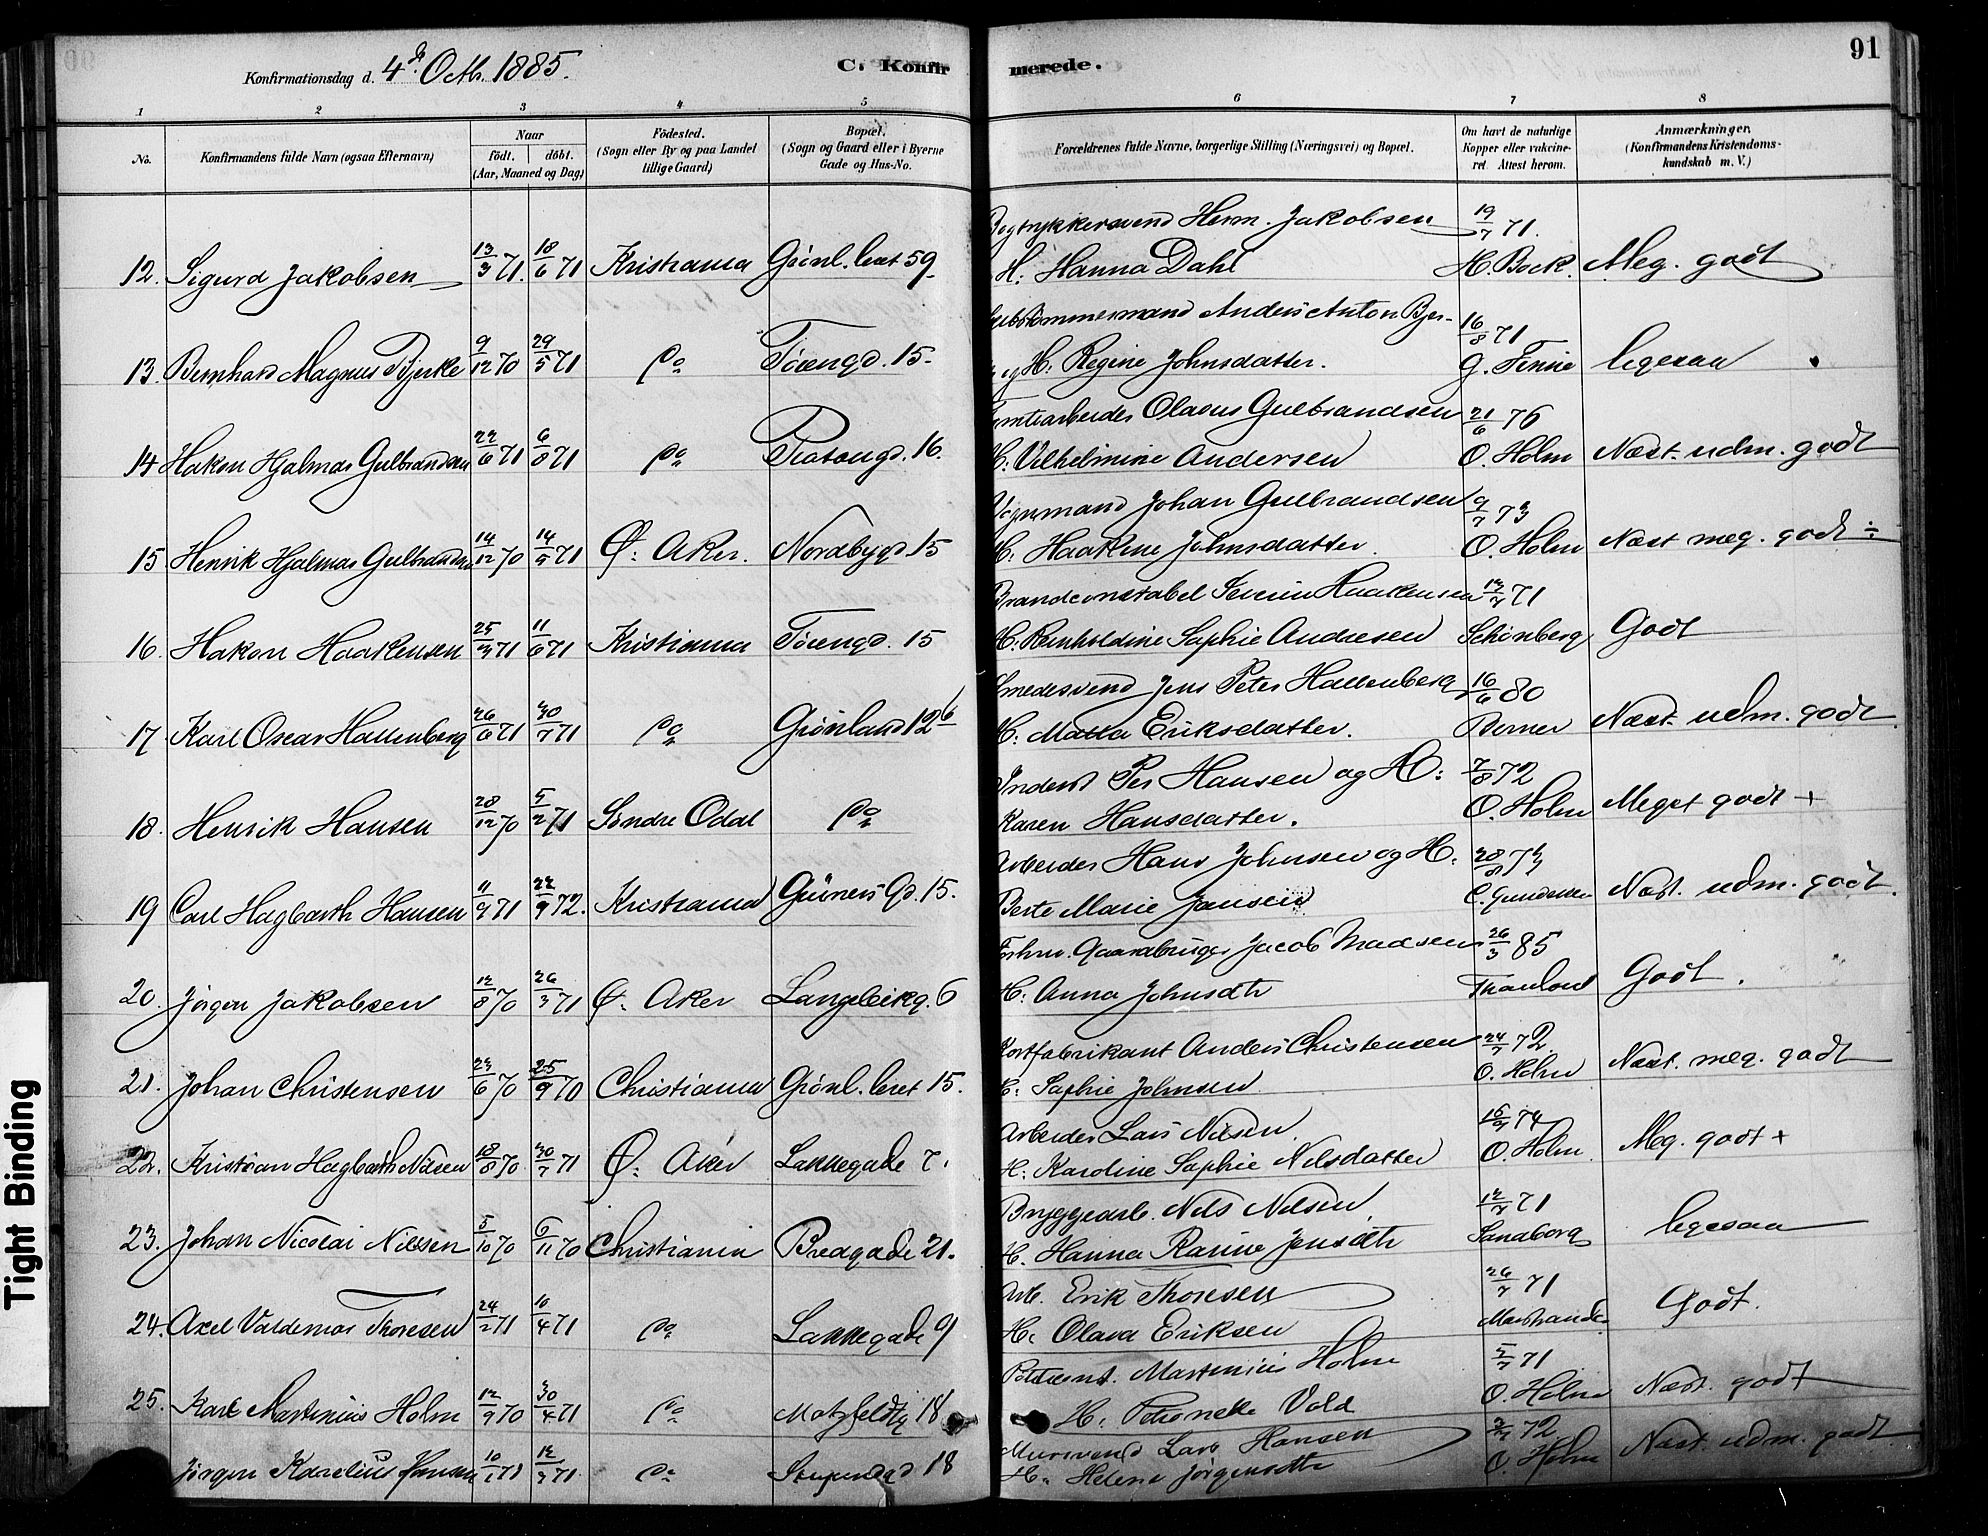 Konfirmationsdag d. 4de Octb. 1885.
C. Konfirmerede.
91
1 2 3 4 5 6 7 8
No.
Konfirmandens fulde Navn (ogsaa Efternavn)
Naar
födt. döbt.
(Aar, Maaned og Dag)
Födested.
(Sogn eller By og paa Landet
tillige Gaard)
Bopæl.
(Sogn og Gaard eller i Byerne
Gade og Hus-No.
Forældrenes fulde Navne, borgerlige Stilling (Næringsvei) og Bopæl.
Om havt de naturlige
Kopper eller vaksine-
ret Attest herom.
Anmærkninger.
(Konfirmandens Kristendoms-
kundskab m. V.)
Bogtrykkersvend Herm. Jakobsen 19/7 71.
12. Sigurd Jakobsen 13/3 71. 18/6 71 Kristiania Grønl. leret 59 H: Hanna Dahl H. Bock. Meg. godt
Anders Anton Bjer- 16/8 71
13. Bernhard Magnus Bjerke 9/12 70 29/5 71 Do Tøiengd. 15 og H: Regine Johnsdatter. G. Finne ligesaa
Olavus Gulbrandsen 21/6 76
14 Hakon Hjalmar Gulbrandsen 22/6 71 6/8 71 Do Platougd. 16. H: Vilhelmine Andersen O. Holm Næst. udm. godt
Vognmand Johan Gulbrandsen 9/7 73
15 Henrik Hjalmar Gulbrandsen 14/12 70 14/5 71 Ø. Aker. Nordbygd. 15 H: Haakine Johnsdatter. O. Holm Næst meg. godt ÷
Brandconstabel Severin Haakensen 13/7 71
16. Hakon Haakensen 25/3 71 11/6 71 Kristiania Tøiengd. 15 H: Reinholdine Sophie Andresen Schønberg Godt
Smedesvend Jens Peter Hallenberg 16/6 80
17 Karl Oscar Hallenberg 26/6 71 30/7 71 Do Grønland 12 b H: Matea Eriksdatter. Berner Næst. udm. godt
Inderst Per Hansen og H: 7/8 72
18. Henrik Hansen 28/12 70 5/2 71 Søndre Odal Do Karen Hansdatter. O. Holm Meget godt +
Arbeider Hans Johnsen og H. 28/8 73
19 Carl Hagbarth Hansen 11/9 71 22/9 72. Kristiania Grüners Gd. 15. Berte Marie Jansen C. Gundersen Næst. udm. godt.
Forhv. Gaardbruger Jacob Madsen 26/3 85
20. Jørgen Jakobsen 12/8 70 26/3 71 Ø. Aker Langleikg. 6 H: Anna Johnsdtr Thaulow Godt.
Kortfabrikant Anders Christensen 24/7 72
21. Johan Christensen 23/6 70 25/9 70 Christiania Grønl. leret 15. H: Sophie Johnsen O. Holm Næst. meg. godt
Arbeider Lars Nilsen 16/7 74
22. Kristian Hagbarth Nilsen 18/8 70 30/7 71 Ø. Aker Lakkegade 7. H: Karoline Sophie Nilsdatter O. Holm. Meg. godt +
Bryggearb. Nils Nilsen 12/7 71
23. Johan Nicolai Nilsen 5/10 70 6/11 70 Christiania Bredgade 21. H. Hanna Karine Jensdtr Sandborg ligesaa
Arb. Erik Thoresen 26/7 71
24. Axel Valdemar Thoresen 24/2 71 10/4 71 Do Lakkegade 9 H: Olava Eriksen Godt.
Martinius Holm 5/7 71
25. Karl Martinius Holm 12/9 70 30/4 71 Do Motzfeldtg 18 H: Vold O. Holm Næst. godt
Murersvend Lars Hansen 72
Jørgen Karelius Hansen 71 71 Do 18 H. Helene Jørgensdtr O. Holm Næst. udm. godt
Tight Binding